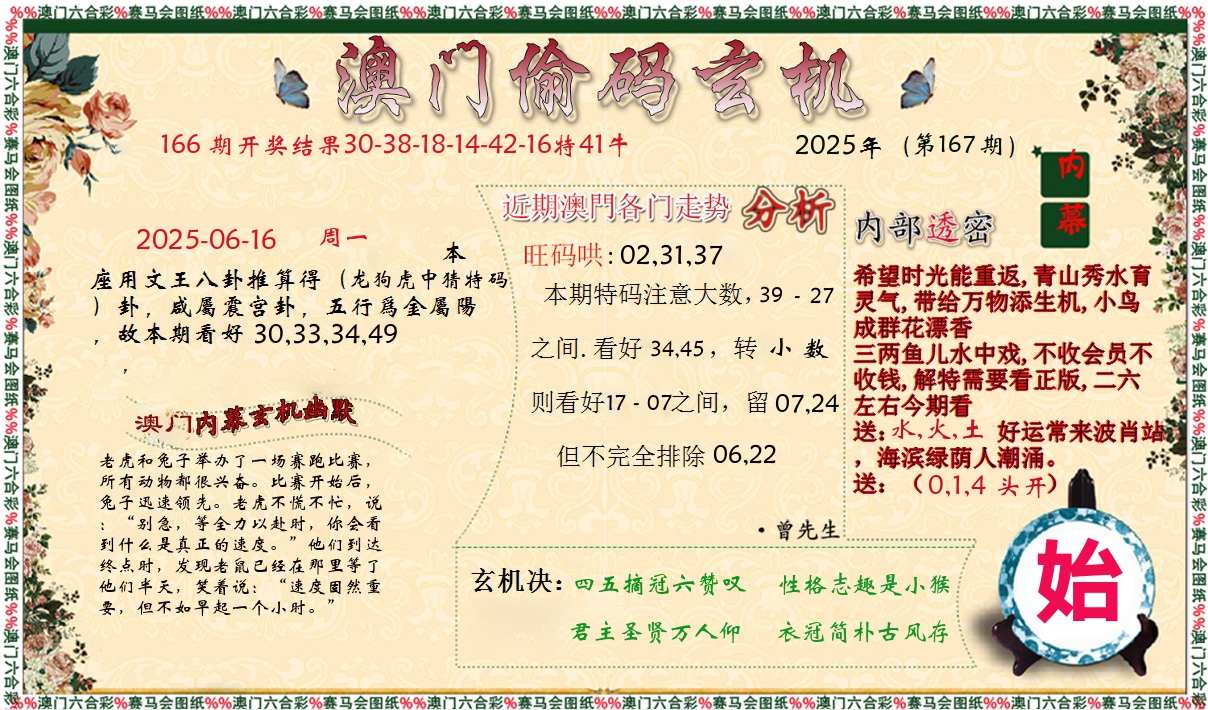 %%澳门六合彩%赛马会图纸%%澳门六合彩%赛马会图纸%%澳门六合彩%赛马会图纸%%澳门六合彩%赛马会图纸%%澳门六合彩%赛马会图纸%%澳门六合彩%赛马会图纸%%
澳门偷码玄机
166 期开奖结果30-38-18-14-42-16特41牛
2025年（第167期）
内
幕
2025-06-16 周一
本
座用文王八卦推算得（龙狗虎中猜特码
）卦，咸屬震宫卦，五行爲金屬陽
，故本期看好 30,33,34,49
，
澳门内幕玄机幽默
老虎和兔子举办了一场赛跑比赛，
所有动物都很兴奋。比赛开始后，
兔子迅速领先。老虎不慌不忙，说
：“别急，等全力以赴时，你会看
到什么是真正的速度。”他们到达
终点时，发现老鼠已经在那里等了
他们半天，笑着说：“速度固然重
要，但不如早起一个小时。”
近期澳門各门走势 分析
旺码哄: 02,31,37
本期特码注意大数, 39 - 27
之间. 看好 34,45 ，转 小 数
则看好17 - 07之间，留 07,24
但不完全排除 06,22
·曾先生
内部透密
希望时光能重返, 青山秀水育
灵气, 带给万物添生机, 小鸟
成群花漂香
三两鱼儿水中戏, 不收会员不
收钱, 解特需要看正版, 二六
左右今期看
送: 水, 火, 土 好运常来波肖站
，海滨绿荫人潮涌。
送: （0,1,4 头开）
玄机决: 四五摘冠六赞叹 性格志趣是小猴
君主圣贤万人仰 衣冠简朴古风存
始
%%澳门六合彩%赛马会图纸%%澳门六合彩%赛马会图纸%%澳门六合彩%赛马会图纸%%澳门六合彩%赛马会图纸%%澳门六合彩%赛马会图纸%%澳门六合彩%赛马会图纸%%